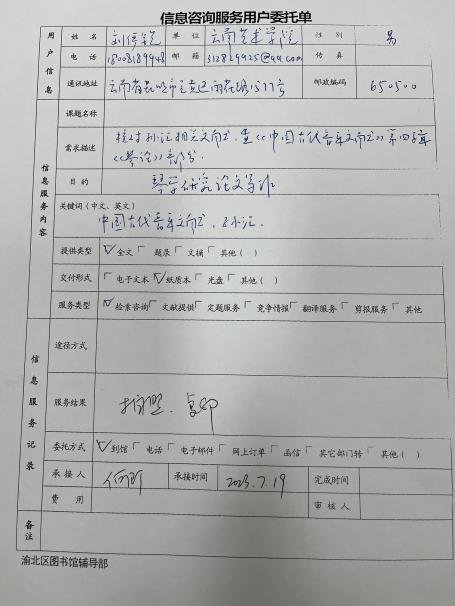 信息咨询服务用户委托单
用户信息
姓名 单位 云南艺术学院 性别 男
电话 18008189948 邮箱 312829925@qq.com 传真
通讯地址 云南省昆明市呈贡区雨花路1577号 邮政编码 650500
信息服务内容
课题名称
需求描述 核对孙汇相关文献，查《中国古代音乐文献》第四辑
《琴论》部分.
目的 琴学研究论文写作
关键词（中文、英文）
中国古代音乐文献、孙汇.
提供类型 全文 题录 文摘 其他（ ）
交付形式 电子文本 纸质本 光盘 其他（ ）
服务类型 检索咨询 文献提供 定题服务 竞争情报 翻译服务 剪报服务 其他
信息服务记录
途径方式
服务结果 拍照、复印
委托方式 到馆 电话 电子邮件 网上订单 函信 其它部门转 其他（ ）
承接人 承接时间 2023.7.19 完成时间
费用 审核人
备注
渝北区图书馆辅导部